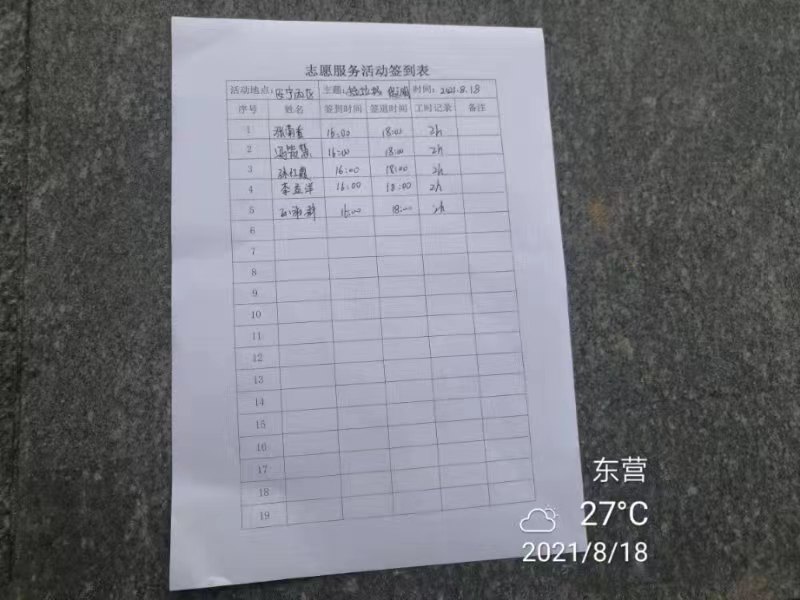 志愿服务活动签到表
活动地点: 主题: 时间: 2021.8.18
序号 姓名 签到时间 签退时间 工时记录 备注
1 16:00 18:00 2h
2 16:00 18:00 2h
3 16:00 18:00 2h
4 李孟洋 16:00 18:00 2h
5 16:00 18:00 2h
6
7
8
9
10
11
12
13
14
15
16
17
18
19
东营
27°C
2021/8/18